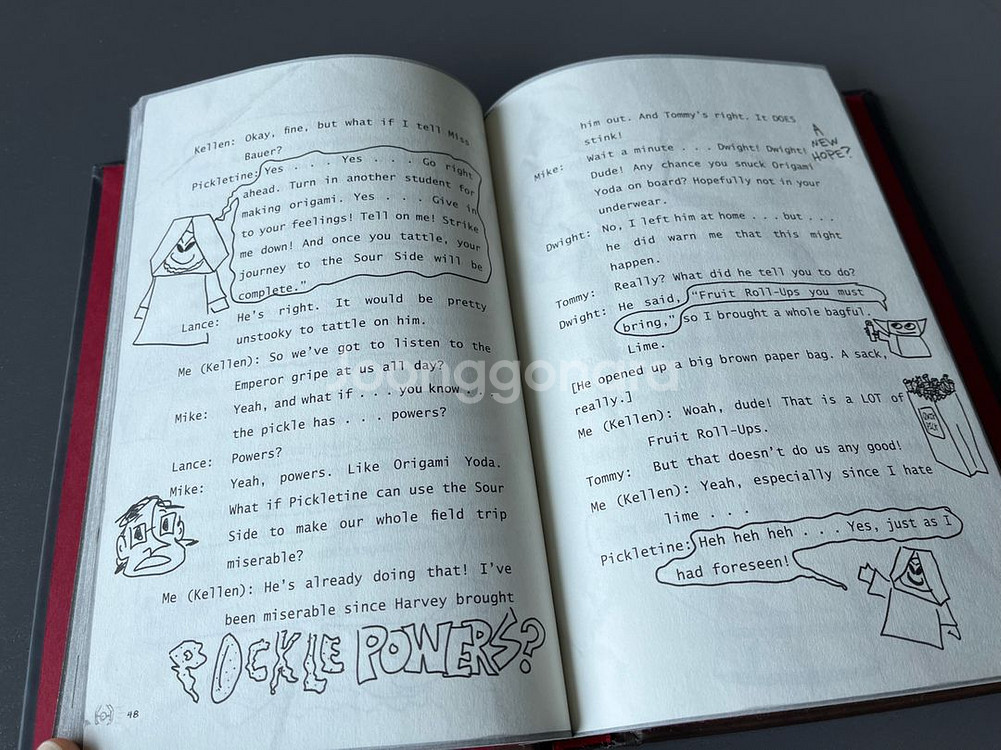 Kellen: Okay, fine, but what if I tell Miss
Bauer?
Pickletine: Yes . . . Yes . . . Go right
ahead. Turn in another student for
making origami. Yes . . . Give in
to your feelings! Tell on me! Strike
me down! And once you tattle, your
journey to the Sour Side will be
complete."
Lance: He's right. It would be pretty
unstooky to tattle on him.
Me (Kellen): So we've got to listen to the
Emperor gripe at us all day?
Mike: Yeah, and what if . . . you know . .
the pickle has . . . powers?
Lance: Powers?
Mike: Yeah, powers. Like Origami Yoda.
What if Pickletine can use the Sour
Side to make our whole field trip
miserable?
Me (Kellen): He's already doing that! I've
been miserable since Harvey brought
PICKLE POWERS?
48
him out. And Tommy's right. It DOES
stink!
A NEW HOPE?
Mike: Wait a minute . . . Dwight! Dwight!
Dude! Any chance you snuck Origami
Yoda on board? Hopefully not in your
underwear.
Dwight: No, I left him at home . . . but . . .
he did warn me that this might
happen.
Tommy: Really? What did he tell you to do?
Dwight: He said, "Fruit Roll-Ups you must
bring," so I brought a whole bagful.
Lime.
[He opened up a big brown paper bag. A sack,
really.]
Me (Kellen): Woah, dude! That is a LOT of
Fruit Roll-Ups.
Tommy: But that doesn't do us any good!
Me (Kellen): Yeah, especially since I hate
lime . . .
Pickletine: Heh heh heh . . . Yes, just as I
had foreseen!
Joonggonara